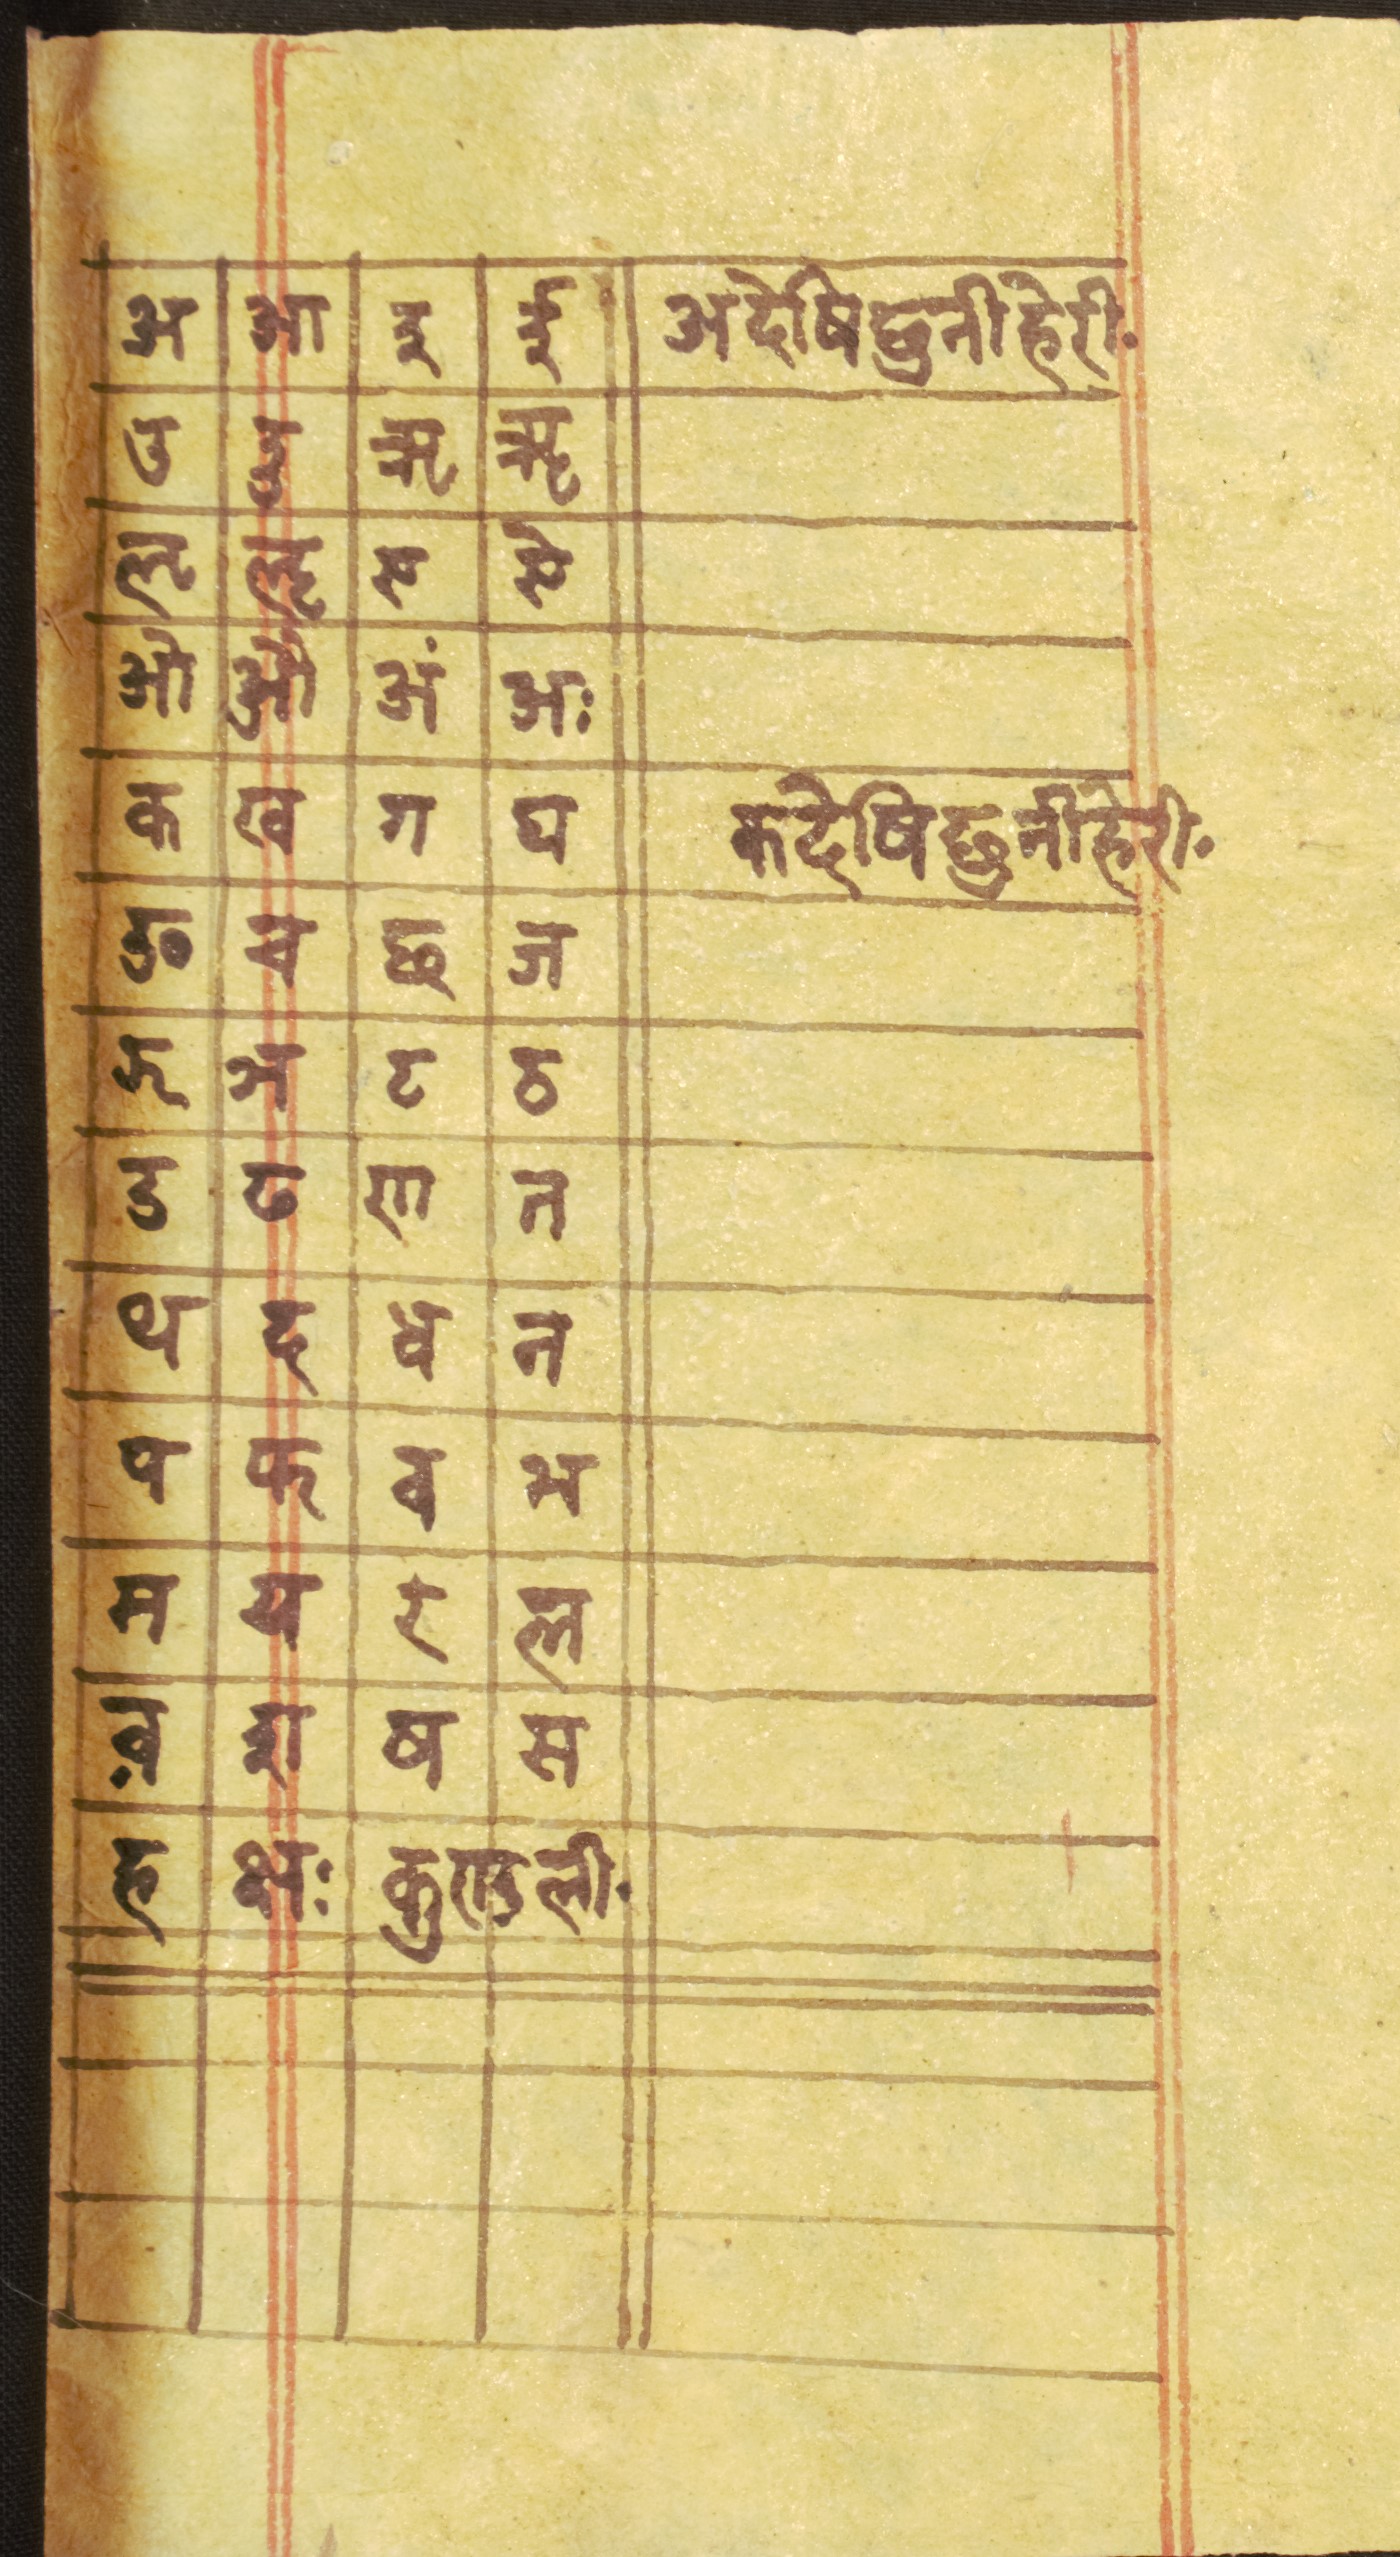 अ आ इ ई अदेषिछुनीहेरी.
उ ऊ ऋ ॠ
ऌ ॡ ए ऐ
ओ औ अं अः
क ख ग घ कदेषिछुनीहेरी.
ङ च छ ज
झ ञ ट ठ
ड ढ ण त
थ द ध न
प फ व भ
म य र ल
व़ श ष स
ह क्षः कुण्डली.